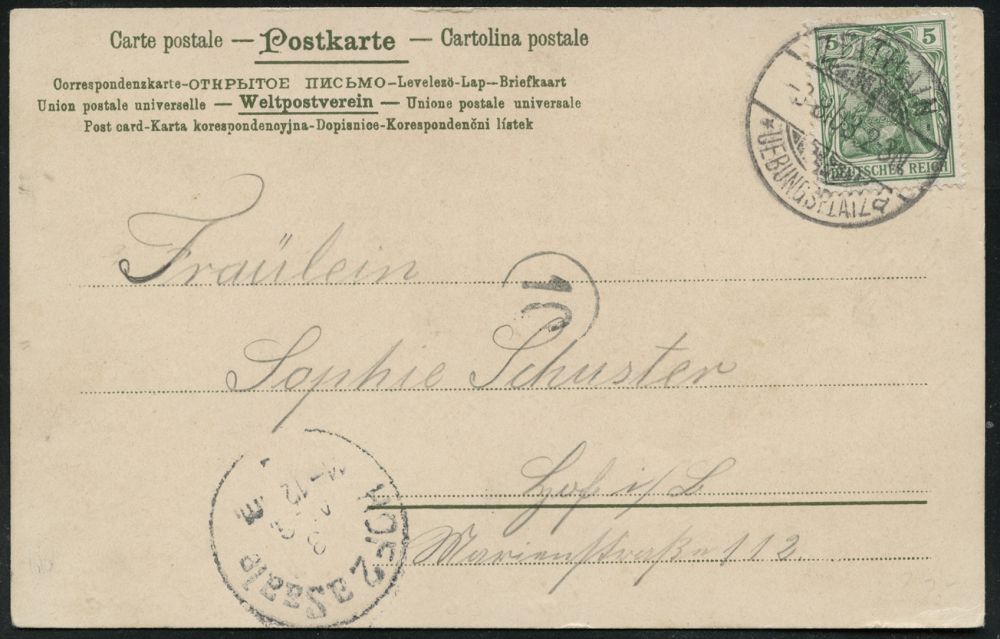 Carte postale — Postkarte — Cartolina postale
Correspondenzkarte-ОТКРЫТОЕ ПИСЬМО-Levelező-Lap--Briefkaart
Union postale universelle — Weltpostverein — Unione postale universale
Post card-Karta korespondencyjna-Dopisnice-Korespondenční lístek
5 5
DEUTSCHES REICH
UEBUNGSPLATZ
Fräulein
10
Sophie Schuster
Hof i/B
Marienstraße 112
HOF 2 a. Saale